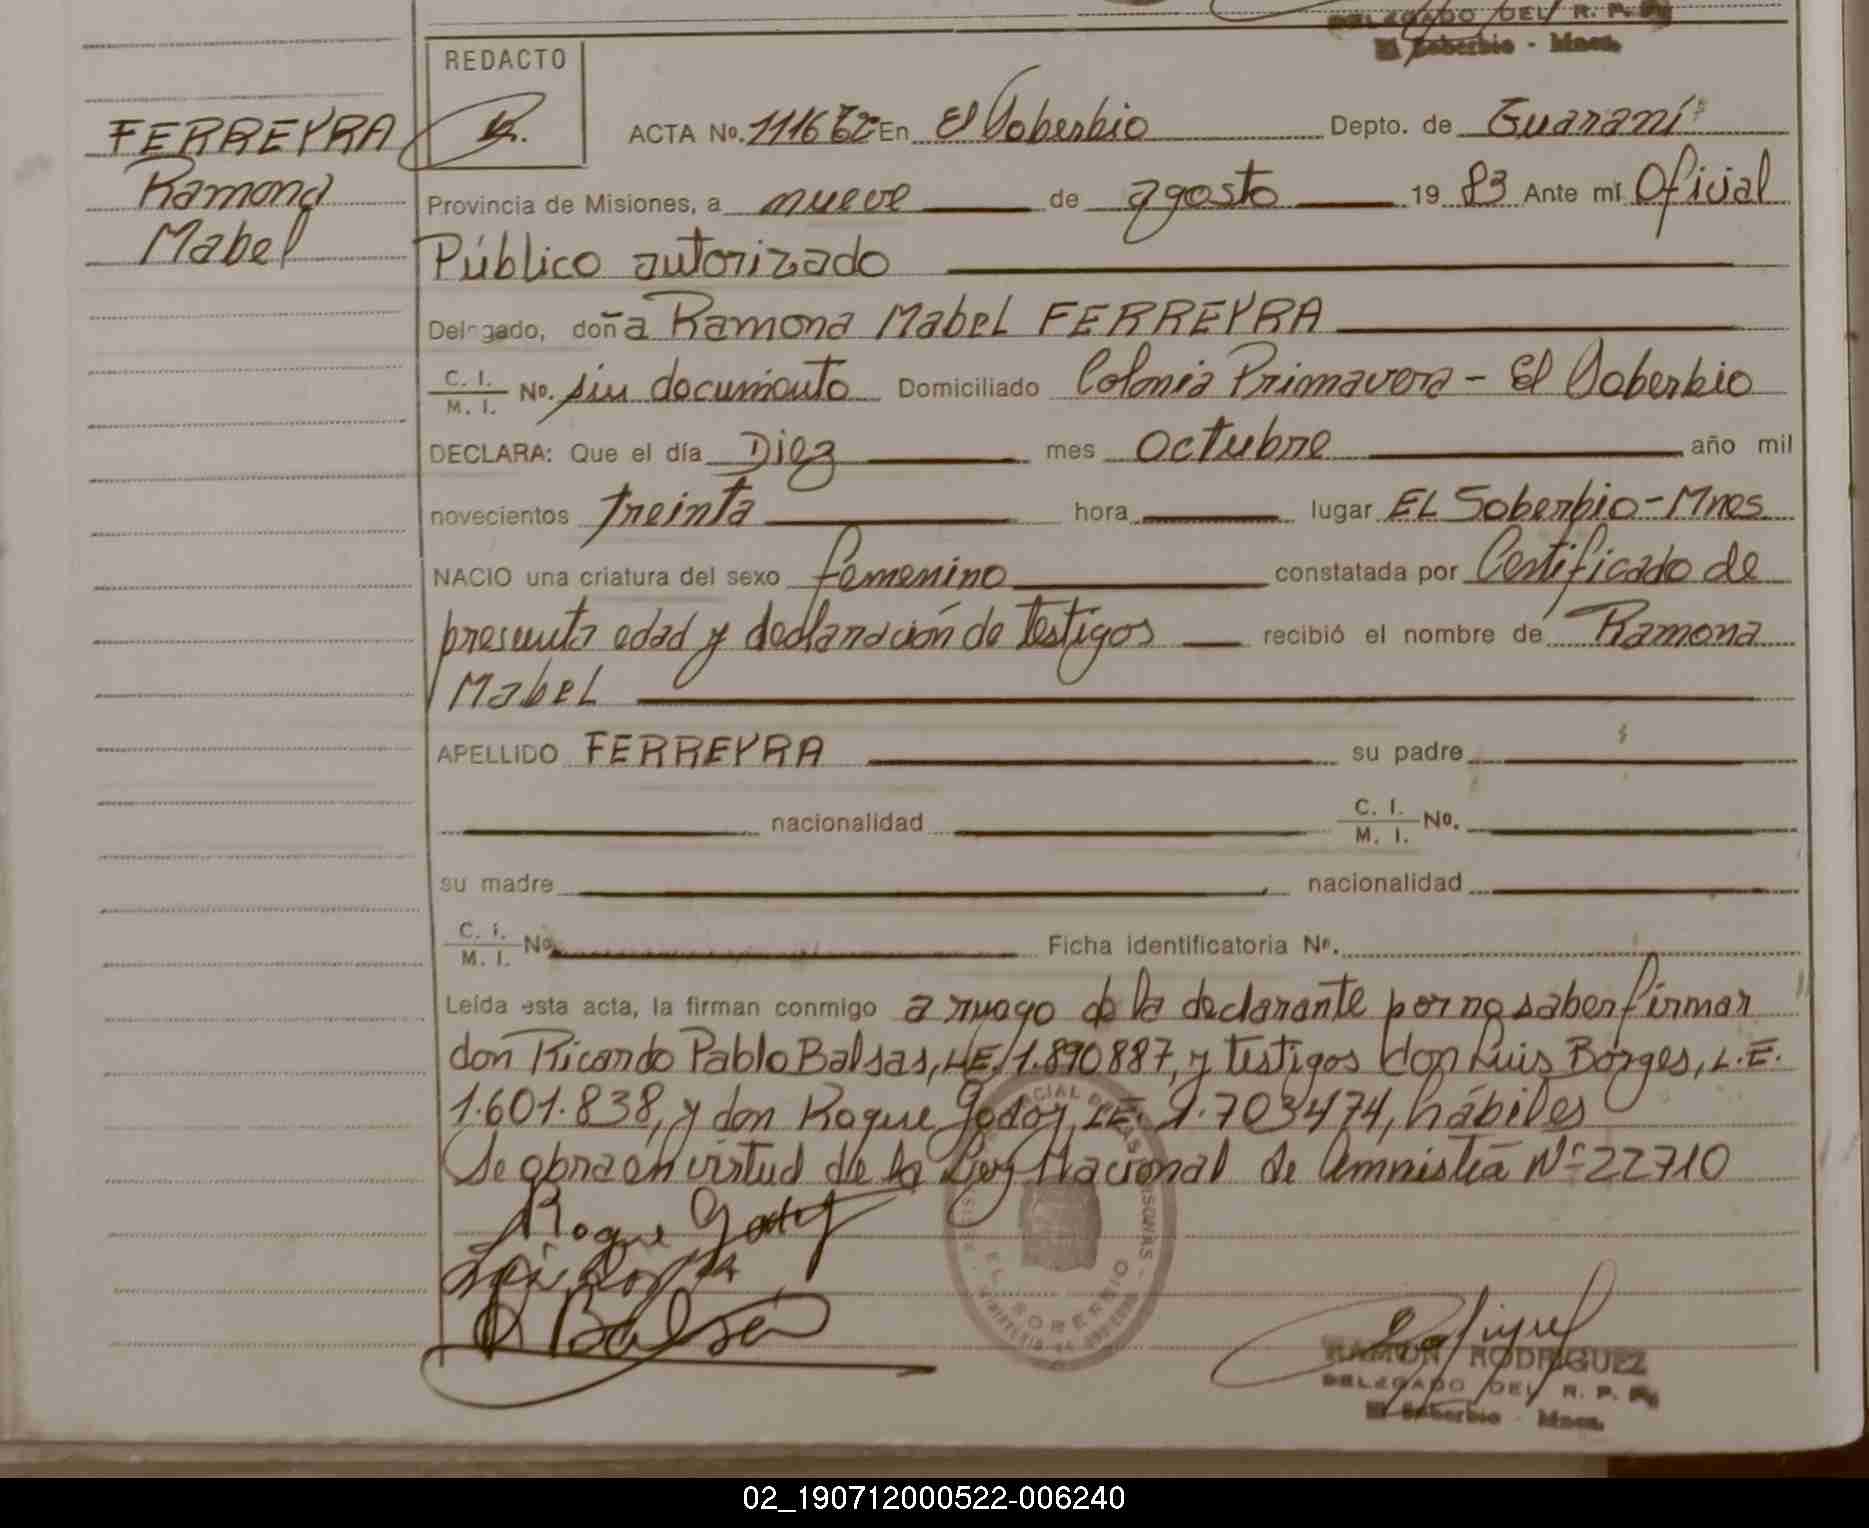 DELEGADO DEL R. P. P.
El Soberbio - Mnes.
REDACTO
FERREYRA
Ramona
Mabel
ACTA No. En El Soberbio Depto. de Guaraní
Provincia de Misiones, a nueve de agosto 19 83 Ante mí Oficial
Público autorizado
Delegado, doña Ramona Mabel FERREYRA
C. I. / M. I. No. sin documento Domiciliado Colonia Primavera - El Soberbio
DECLARA: Que el día Diez mes octubre año mil
novecientos treinta hora lugar EL Soberbio - Mnes
NACIO una criatura del sexo femenino constatada por Certificado de
presunta edad y declaración de testigos recibió el nombre de Ramona
Mabel
APELLIDO FERREYRA su padre
nacionalidad C. I. / M. I. No.
su madre nacionalidad
C. I. / M. I. No Ficha identificatoria No.
Leída esta acta, la firman conmigo a ruego de la declarante por no saber firmar
don Ricardo Pablo Balsas, L.E. 1.890887, y testigos don Luis Borges, L.E.
1.601.838, y don Roque Godoy, L.E. 1.703474, hábiles
Se obra en virtud de la Ley Nacional de Amnistía Nº 22710
Roque Godoy
R Balsas
EL SOBERBIO
RAMON RODRIGUEZ
DELEGADO DEL R. P. P.
El Soberbio - Mnes.
02_190712000522-006240